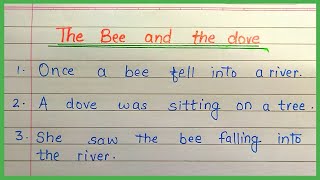 The Bee and the dove
1. Once a bee fell into a river.
2. A dove was sitting on a tree.
3. She saw the bee falling into
the river.